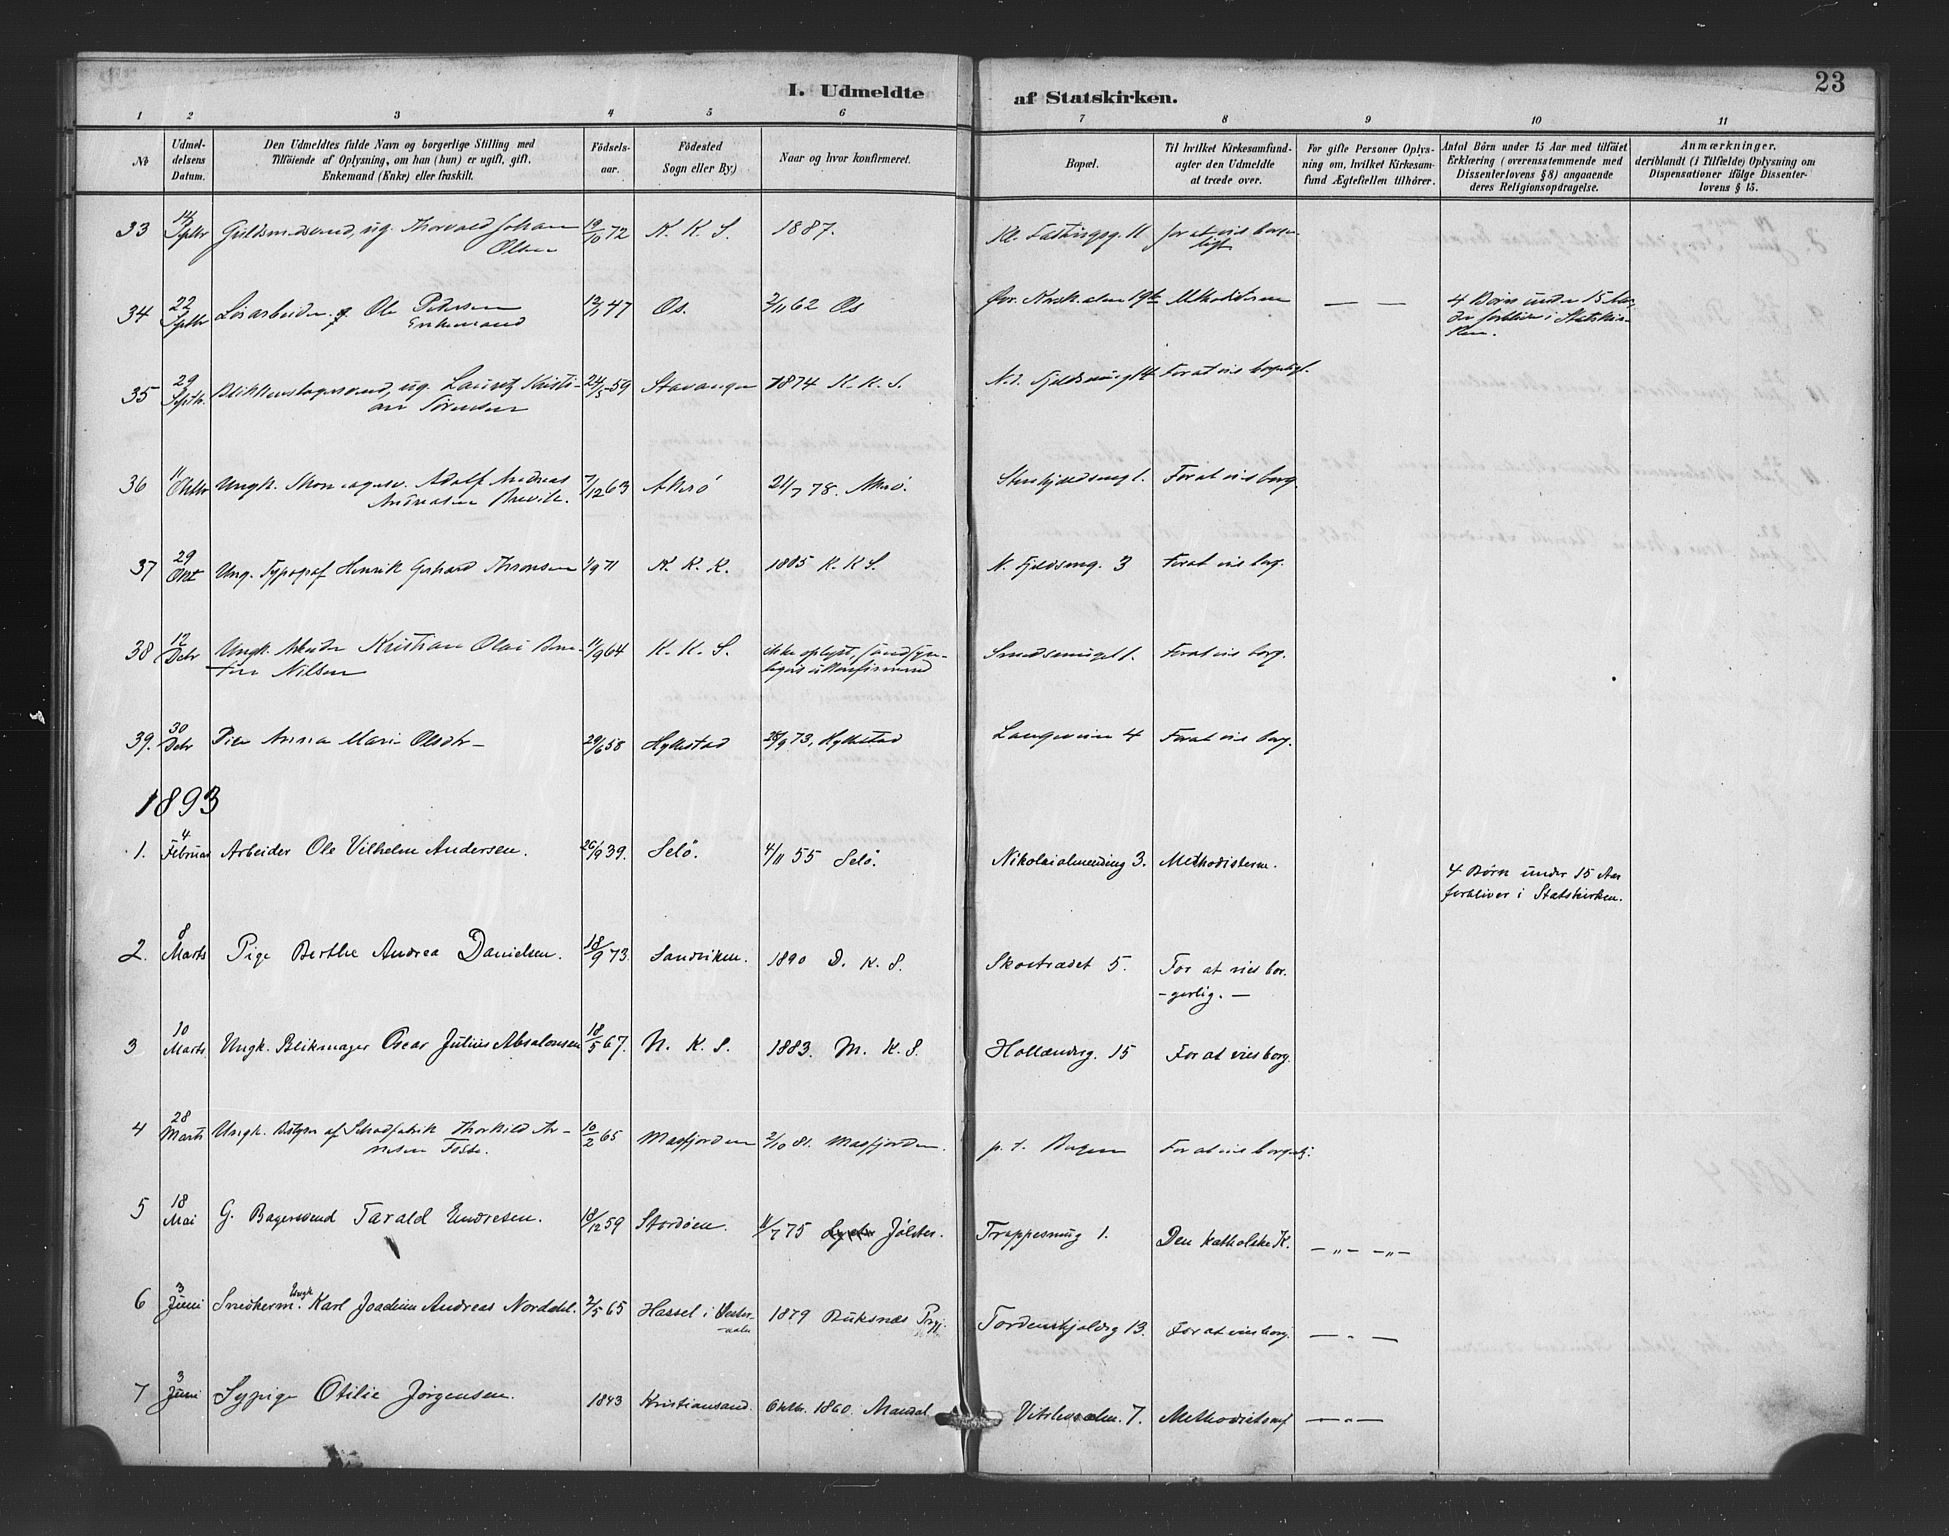 23
I. Udmeldte af Statskirken.
1 2 3 4 5 6 7 8 9 10 11
No
Udmel-
delsens
Datum.
Den Udmeldtes fulde Navn og borgerlige Stilling med
Tilföiende af Oplysning, om han (hun) er ugift, gift,
Enkemand (Enke) eller fraskilt.
Födsels-
aar.
Födested
Sogn eller By.)
Naar og hvor konfirmeret.
Bopæl.
Til hvilket Kirkesamfund-
agter den Udmeldte
at træde over.
For gifte Personer Oplys-
ning om, hvilket Kirkesam-
fund Ægtefællen tilhörer.
Antal Börn under 15 Aar med tilföiet
Erklæring (overensstemmende med
Dissenterlovens § 8) angaaende
deres Religionsopdragelse.
Anmærkninger,
deriblandt (i Tilfælde) Oplysning om
Dispensationer ifölge Dissenter-
lovens § 15.
33 14 Septbr Guldsmedsvend, ug. Thorvald Johan 19/10 72 K. K. S. 1887. 11 for at vies borger-
Olsen ligt
34 22 Septbr Ole Petersen 47 Os. 2/11 62 Os Methodisterne — — 4 Børn under 15 Aar,
Enkemand der forbliver i Statskir-
ken.
35 29 Septbr. Blikkenslagersvend, ug. Lauritz Kristi- 24/5 59 Stavanger 1874 K. K. S. For at vies borgerligt.
an Sørensen
36 11 Oktbr Ungk. Adolf Andreas 7/12 63 Akerø 21/7 78. Akerø. For at vies borg.
Andreasen
37 29 Okt Ung. Typograf Henrik Gerhard 1/9 71 K. K. K. 1885 K. K. S. N. Fjeldsmg. 3 For at vies borg.
38 12 Decbr Ungk. Arbeider Kristian Olai 11/9 64 K. K. S. ikke oplyst, sandsyn- Smedsmuget 1. For at vies borg.
Nilsen ligvis ukonfirmeret
39. 30 Decbr Pige Anna Marie Olsdtr — 29/6 58 Hyllestad 28/9 73, Hyllestad Langeveien 4 For at vies borg.
1893
1. 4 Februar Arbeider Ole Vilhelm Andersen. 26/9 39. Selö. 4/11 55 Selö. Nikolaialmending 3. Methodisterne. 4 Børn under 15 Aar
forbliver i Statskirken.
2. 8 Marts Pige Berthe Andrea Danielsen. 18/9 73. Sandviken. 1890 D. K. S. Skostrædet 5. For at vies bor-
-gerlig. —
3 10 Marts Ungk. Blikmager Oscar Julius Absalonsen 18/5 67. N. K. S. 1883. M. K. S. Hollænderg. 15 For at vies borg.
4 28 Marts Ungk. Bestyrer af Thorkild Ar- 10/2 65 Masfjorden 2/10 81. Masfjorden. p. t. Bergen For at vies borgerlig.
nesen
5 18 Mai G. Bagersvend Tarald Endresen. 18/12 59 Stordöen. 11/7 75 Jölster. Trappesmug 1. Den katholske K. — „ — — „ —
6 3 Juni Snedkerm. Ungk Karl Joachim Andreas Norddal. 2/5 65 Hassel i Vester- 1879 Buksnæs Prgj. Tordenskjoldsg 13. For at vies borg. — „ —
aalen
7 3 Juni Sypige Otilie Jörgensen. 1843 Kristiansand. Oktbr. 1860. Mandal 7. Methodistsamf — „ —